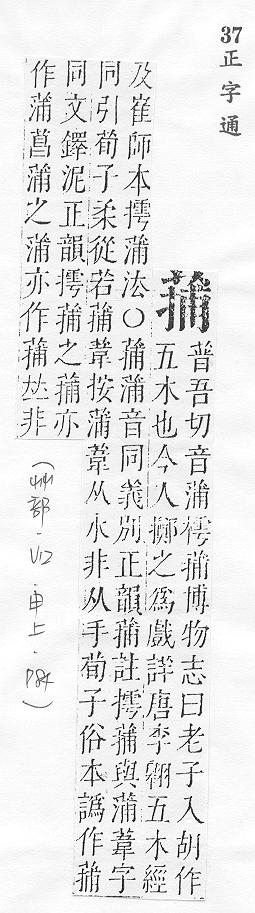 37
正字通
蒱
普吾切音蒲樗蒱博物志曰老子入胡作
五木也今人擲之爲戲詳唐李翱五木經
及崔師本摴蒲法〇蒱蒲音同義別正韻蒱註摴蒱與蒲葦字
同引荀子柔從若蒱葦按蒲葦从水非从手荀子俗本譌作蒱
同文鐸泥正韻摴蒱之蒱亦
作蒲菖蒲之蒲亦作蒱𠀤非
(艸部.申上.P84)